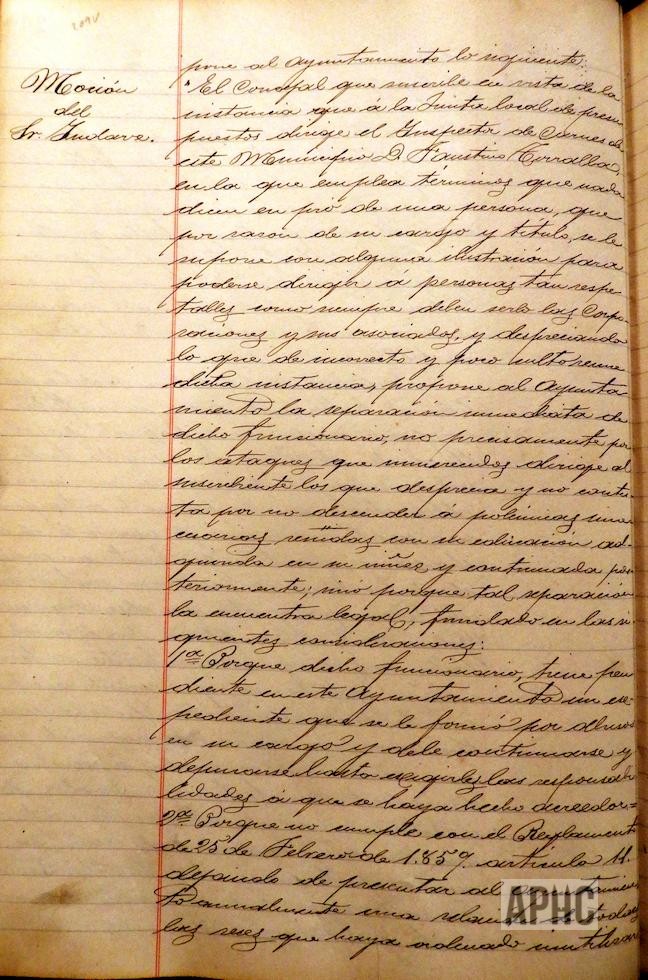 209V
Moción
del
Sr. Yndave.
pone al Ayuntamiento lo siguiente:
"El Concejal que suscribe en vista de la
instancia que á la Junta local de presu
puestos dirige el Ynspector de Carnes de
este Municipio D. Faustino Torralba,
en la que emplea términos que nada
dicen en pró de una persona, que
por razon de su cargo y título, se le
supone con alguna ilustración para
poderse dirigir á personas tan respe
tables como siempre deben serlo las Corpo
raciones y sus asociados, y despreciando
lo que de incorrecto y poco culto reune
dicha instancia, propone al Ayunta
miento la separación inmediata de
dicho funcionario, no precisamente por
los ataques que inmerecidos dirige al
suscribiente los que desprecia y no contes
ta por no descender á polémicas inne
cesarias reñidas con su educación ad-
quirida en su niñez y continuada pos
teriormente; sinó porque tal separación
la encuentra legal, fundado en las si-
guientes consideraciones:
1ª Porque dicho funcionario, tiene pen
diente en este Ayuntamiento un ex-
pediente que se le formó por abusos
en su cargo y debe continuarse y
depurarse hasta exigirles las responsabi
lidades á que se haya hecho acreedor=
2ª Porque no cumple con el Reglamento
de 25 de Febrero de 1.859. articulo 11.
dejando de presentar al Ayuntamien
to anualmente una relación de todas
las reses que haya ordenado inutilizar
APHC